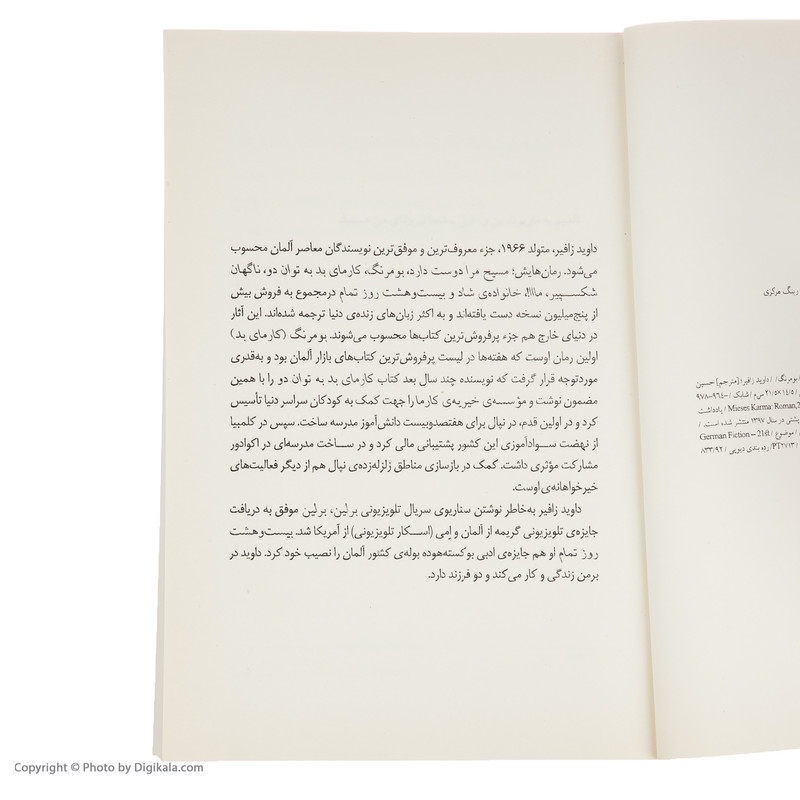 رینگ مرکزی
بومرنگ/ / داوید زافیر؛ [مترجم] حسین
۲۱/۵×۱۴/۵ س‌م / شابک / ۹۶۴-۹۷۸
Mieses Karma: Roman,2 یادداشت
پشتی در سال ۱۳۹۷ منتشر شده است. /
/ موضوع / German Fiction -- 21st
PT۲۷۱۳/ رده بندی دیویی / ۸۳۳/۹۲
داوید زافیر، متولد ۱۹۶۶، جزء معروف‌ترین و موفق‌ترین نویسندگان معاصر آلمان محسوب
می‌شود. رمان‌هایش؛ مسیح مرا دوست دارد، بومرنگ، کارمای بد به توان دو، ناگهان
شکسپیر، ماااا، خانواده‌ی شاد و بیست‌وهشت روز تمام درمجموع به فروش بیش
از پنج‌میلیون نسخه دست یافته‌اند و به اکثر زبان‌های زنده‌ی دنیا ترجمه شده‌اند. این آثار
در دنیای خارج هم جزء پرفروش‌ترین کتاب‌ها محسوب می‌شوند. بومرنگ (کارمای بد)
اولین رمان اوست که هفته‌ها در لیست پرفروش‌ترین کتاب‌های بازار آلمان بود و به‌قدری
موردتوجه قرار گرفت که نویسنده چند سال بعد کتاب کارمای بد به توان دو را با همین
مضمون نوشت و مؤسسه‌ی خیریه‌ی کارما را جهت کمک به کودکان سراسر دنیا تأسیس
کرد و در اولین قدم، در نپال برای هفتصدوبیست دانش‌آموز مدرسه ساخت. سپس در کلمبیا
از نهضت سوادآموزی این کشور پشتیبانی مالی کرد و در ساخت مدرسه‌ای در اکوادور
مشارکت مؤثری داشت. کمک در بازسازی مناطق زلزله‌زده‌ی نپال هم از دیگر فعالیت‌های
خیرخواهانه‌ی اوست.
داوید زافیر به‌خاطر نوشتن سناریوی سریال تلویزیونی برلین، برلین موفق به دریافت
جایزه‌ی تلویزیونی گریمه از آلمان و اِمی (اسکار تلویزیونی) از آمریکا شد. بیست‌وهشت
روز تمام او هم جایزه‌ی ادبی بوکسته‌هوده بوله‌ی کشور آلمان را نصیب خود کرد. داوید در
برمن زندگی و کار می‌کند و دو فرزند دارد.
Copyright © Photo by Digikala.com